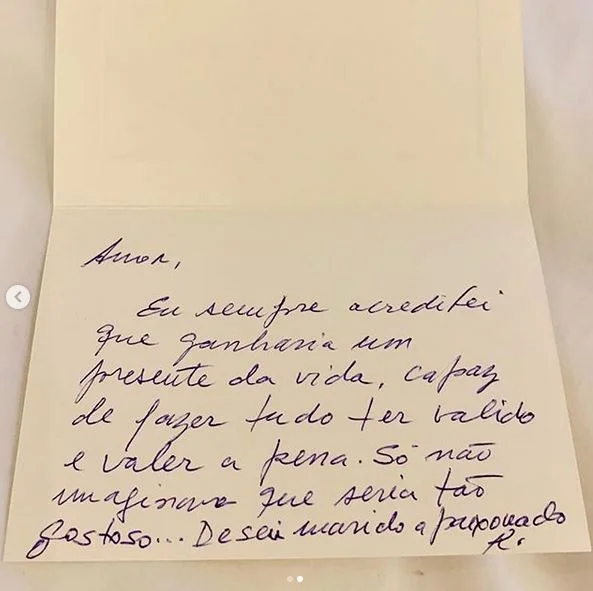 Amor,
Eu sempre acreditei
que ganharia um
presente da vida, capaz
de fazer tudo ter valido
e valer a pena. Só não
imaginava que seria tão
gostoso... De seu marido apaixonado
R.